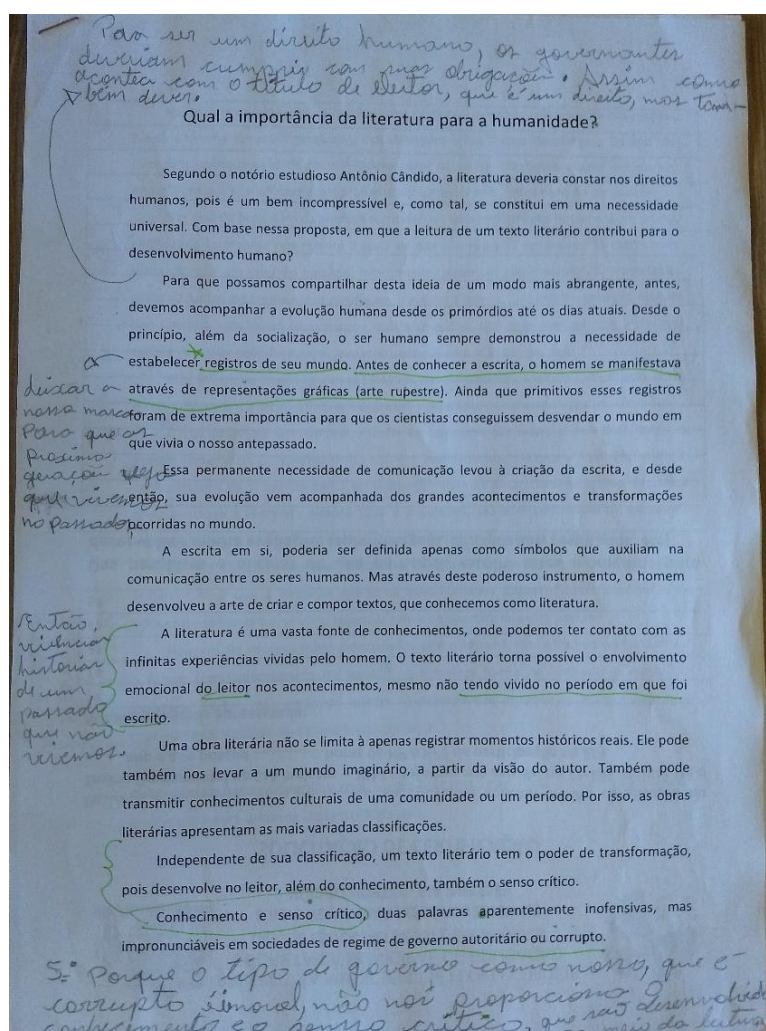 Para ser um direito humano, os governantes
deveriam cumprir com suas obrigações. Assim como
acontece com o título de eleitor, que é um direito, mas tam-
bém dever.
Qual a importância da literatura para a humanidade?
Segundo o notório estudioso Antônio Cândido, a literatura deveria constar nos direitos
humanos, pois é um bem incompressível e, como tal, se constitui em uma necessidade
universal. Com base nessa proposta, em que a leitura de um texto literário contribui para o
desenvolvimento humano?
Para que possamos compartilhar desta ideia de um modo mais abrangente, antes,
devemos acompanhar a evolução humana desde os primórdios até os dias atuais. Desde o
princípio, além da socialização, o ser humano sempre demonstrou a necessidade de
estabelecer registros de seu mundo. Antes de conhecer a escrita, o homem se manifestava
através de representações gráficas (arte rupestre). Ainda que primitivos esses registros
foram de extrema importância para que os cientistas conseguissem desvendar o mundo em
que vivia o nosso antepassado.
deixar a
nossa marca
Para que as
proximo
gerações
vivemos
no passado
Essa permanente necessidade de comunicação levou à criação da escrita, e desde
então, sua evolução vem acompanhada dos grandes acontecimentos e transformações
ocorridas no mundo.
A escrita em si, poderia ser definida apenas como símbolos que auxiliam na
comunicação entre os seres humanos. Mas através deste poderoso instrumento, o homem
desenvolveu a arte de criar e compor textos, que conhecemos como literatura.
Então,
vivenciar
historias
de um
passado
que não
vivemos.
A literatura é uma vasta fonte de conhecimentos, onde podemos ter contato com as
infinitas experiências vividas pelo homem. O texto literário torna possível o envolvimento
emocional do leitor nos acontecimentos, mesmo não tendo vivido no período em que foi
escrito.
Uma obra literária não se limita à apenas registrar momentos históricos reais. Ele pode
também nos levar a um mundo imaginário, a partir da visão do autor. Também pode
transmitir conhecimentos culturais de uma comunidade ou um período. Por isso, as obras
literárias apresentam as mais variadas classificações.
Independente de sua classificação, um texto literário tem o poder de transformação,
pois desenvolve no leitor, além do conhecimento, também o senso crítico.
Conhecimento e senso crítico, duas palavras aparentemente inofensivas, mas
impronunciáveis em sociedades de regime de governo autoritário ou corrupto.
5.º Porque o tipo de governo como nosso, que é
corrupto imoral, não nos proporciona o
conhecimento e o senso crítico, que são desenvolvido